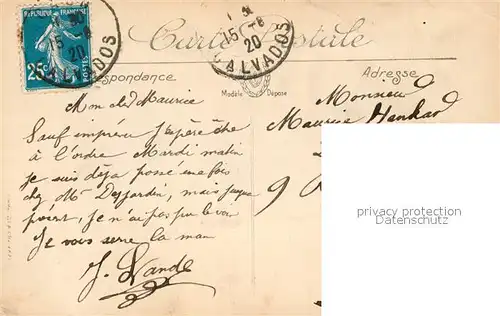 RÉPUBLIQUE FRANÇAISE
25c
POSTES
15 -8
20
CALVADOS
15 -8
20
CALVADOS
Carte Postale
Correspondance
Adresse
Modèle Déposé
Mon cher Maurice
Sauf imprévu j'espère être
à l'ordre Mardi matin
je suis déjà passé une fois
chez Mr Desjardin, mais jusque
présent, je n'ai pas pu le voir
Je vous serre la main
J. Lande
Monsieur
Maurice
9
privacy protection
privacy protection